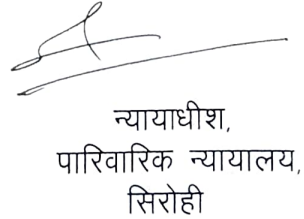 न्यायाधीश,
पारिवारिक न्यायालय,
सिरोही